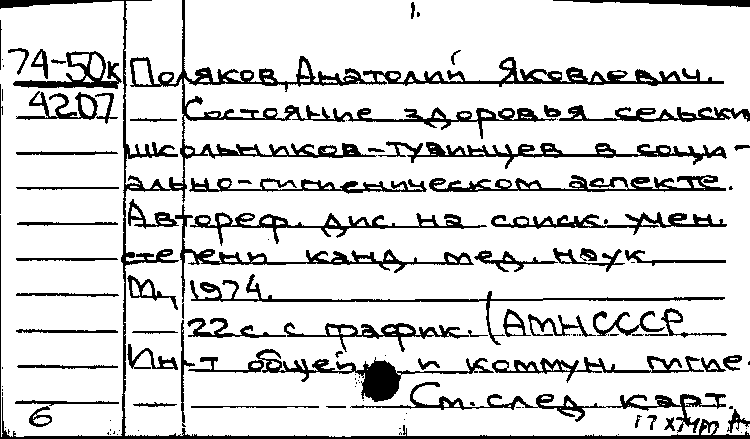 1.
74-50к Поляков, Анатолий Яковлевич.
4207 Состояние здоровья сельски
школьников-тувинцев в соци-
ально-гигиеническом аспекте.
Автореф. дис. на соиск. учен.
степени канд. мед. наук.
М., 1974.
22 с. с график. (АМН СССР.
Ин-т общей и коммун. гигие-
См. след. карт.
6